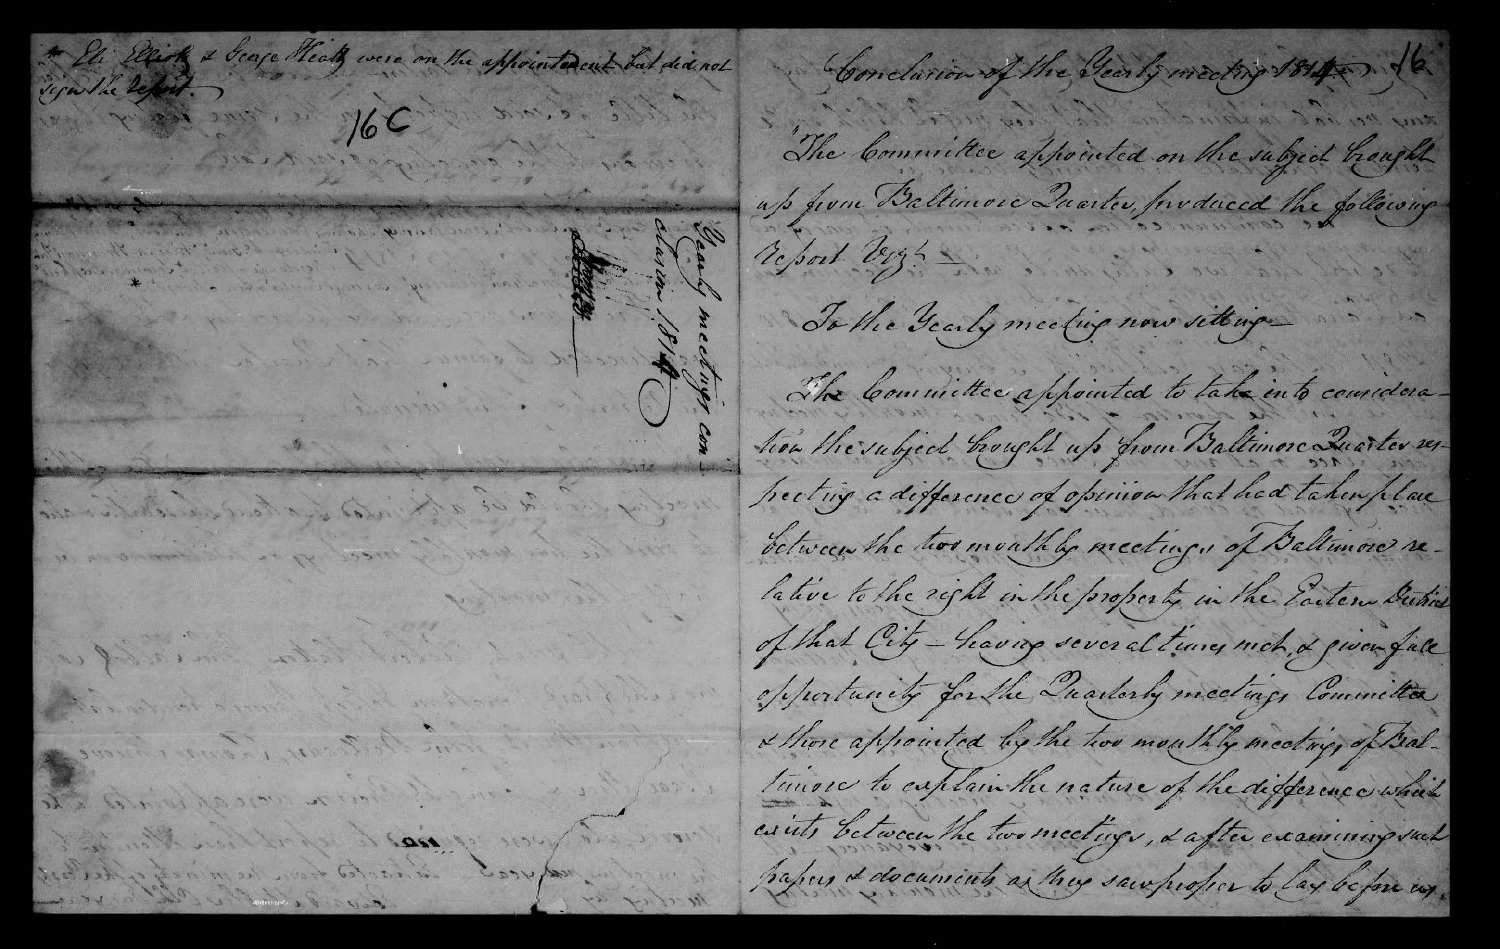 * Eli Elliott & George Heatly were on the appointement but did not
sign the report.
16 C
Yearly meetings con-
clusion 1814
Conclusion of the Yearly meeting 1814
16
"The Committee appointed on the subject brought
up from Baltimore Quarter, produced the following
report Vizt. —
To the Yearly meeting now sitting —
The Committee appointed to take into considera-
tion the subject brought up from Baltimore Quarter res-
pecting a difference of opinion that had taken place
between the two monthly meetings of Baltimore re-
lative to the right in the property in the Eastern District
of that City — having several times met, & given full
opportunity for the Quarterly meetings Committee
& those appointed by the two monthly meetings of Bal-
timore to explain the nature of the difference which
exists between the two meetings, & after examining such
papers & documents as they saw proper to lay before us,